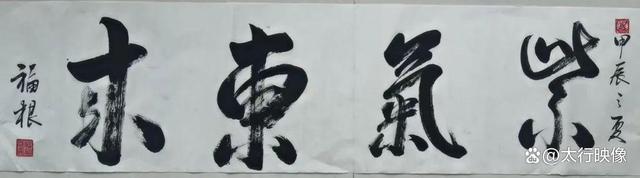 甲辰之夏
紫氣東来
福根
@太行映像